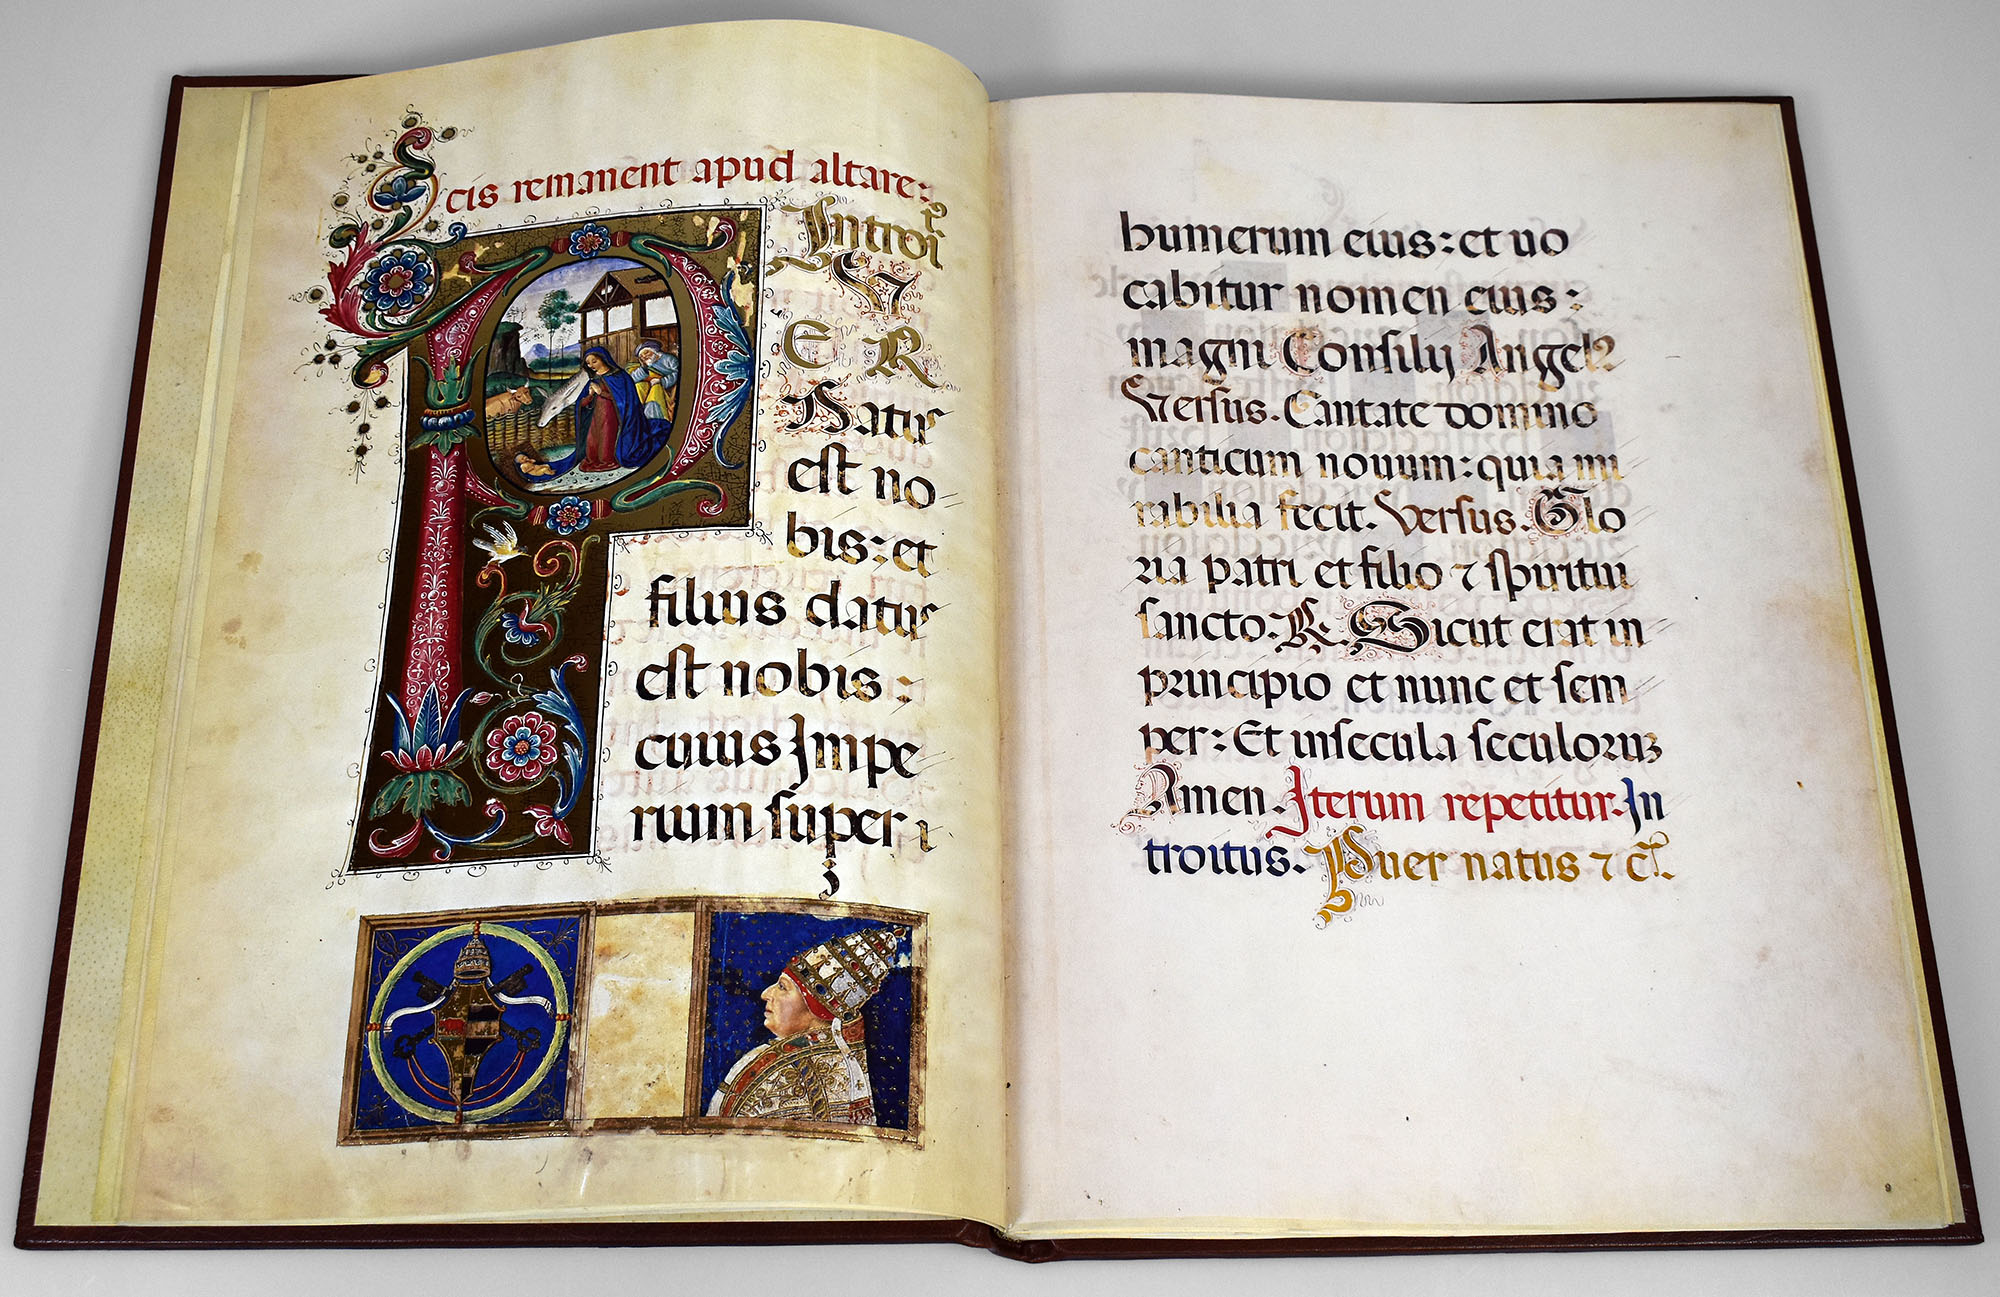 cis remanent apud altare:
Introi
P V
E R
Natus
est no
bis: et
filius datus
est nobis:
cuius Impe
rium super
humerum eius: et uo
cabitur nomen eius:
magni Consilij Angelꝰ
Versus. Cantate domino
canticum nouum: quia mi
rabilia fecit. Versus. Glo
ria patri et filio ⁊ spiritui
sancto. R. Sicut erat in
principio et nunc et sem
per: Et insecula seculoruꝫ
Amen. Iterum repetitur. In
troitus. Puer natus ⁊ c̃.
9